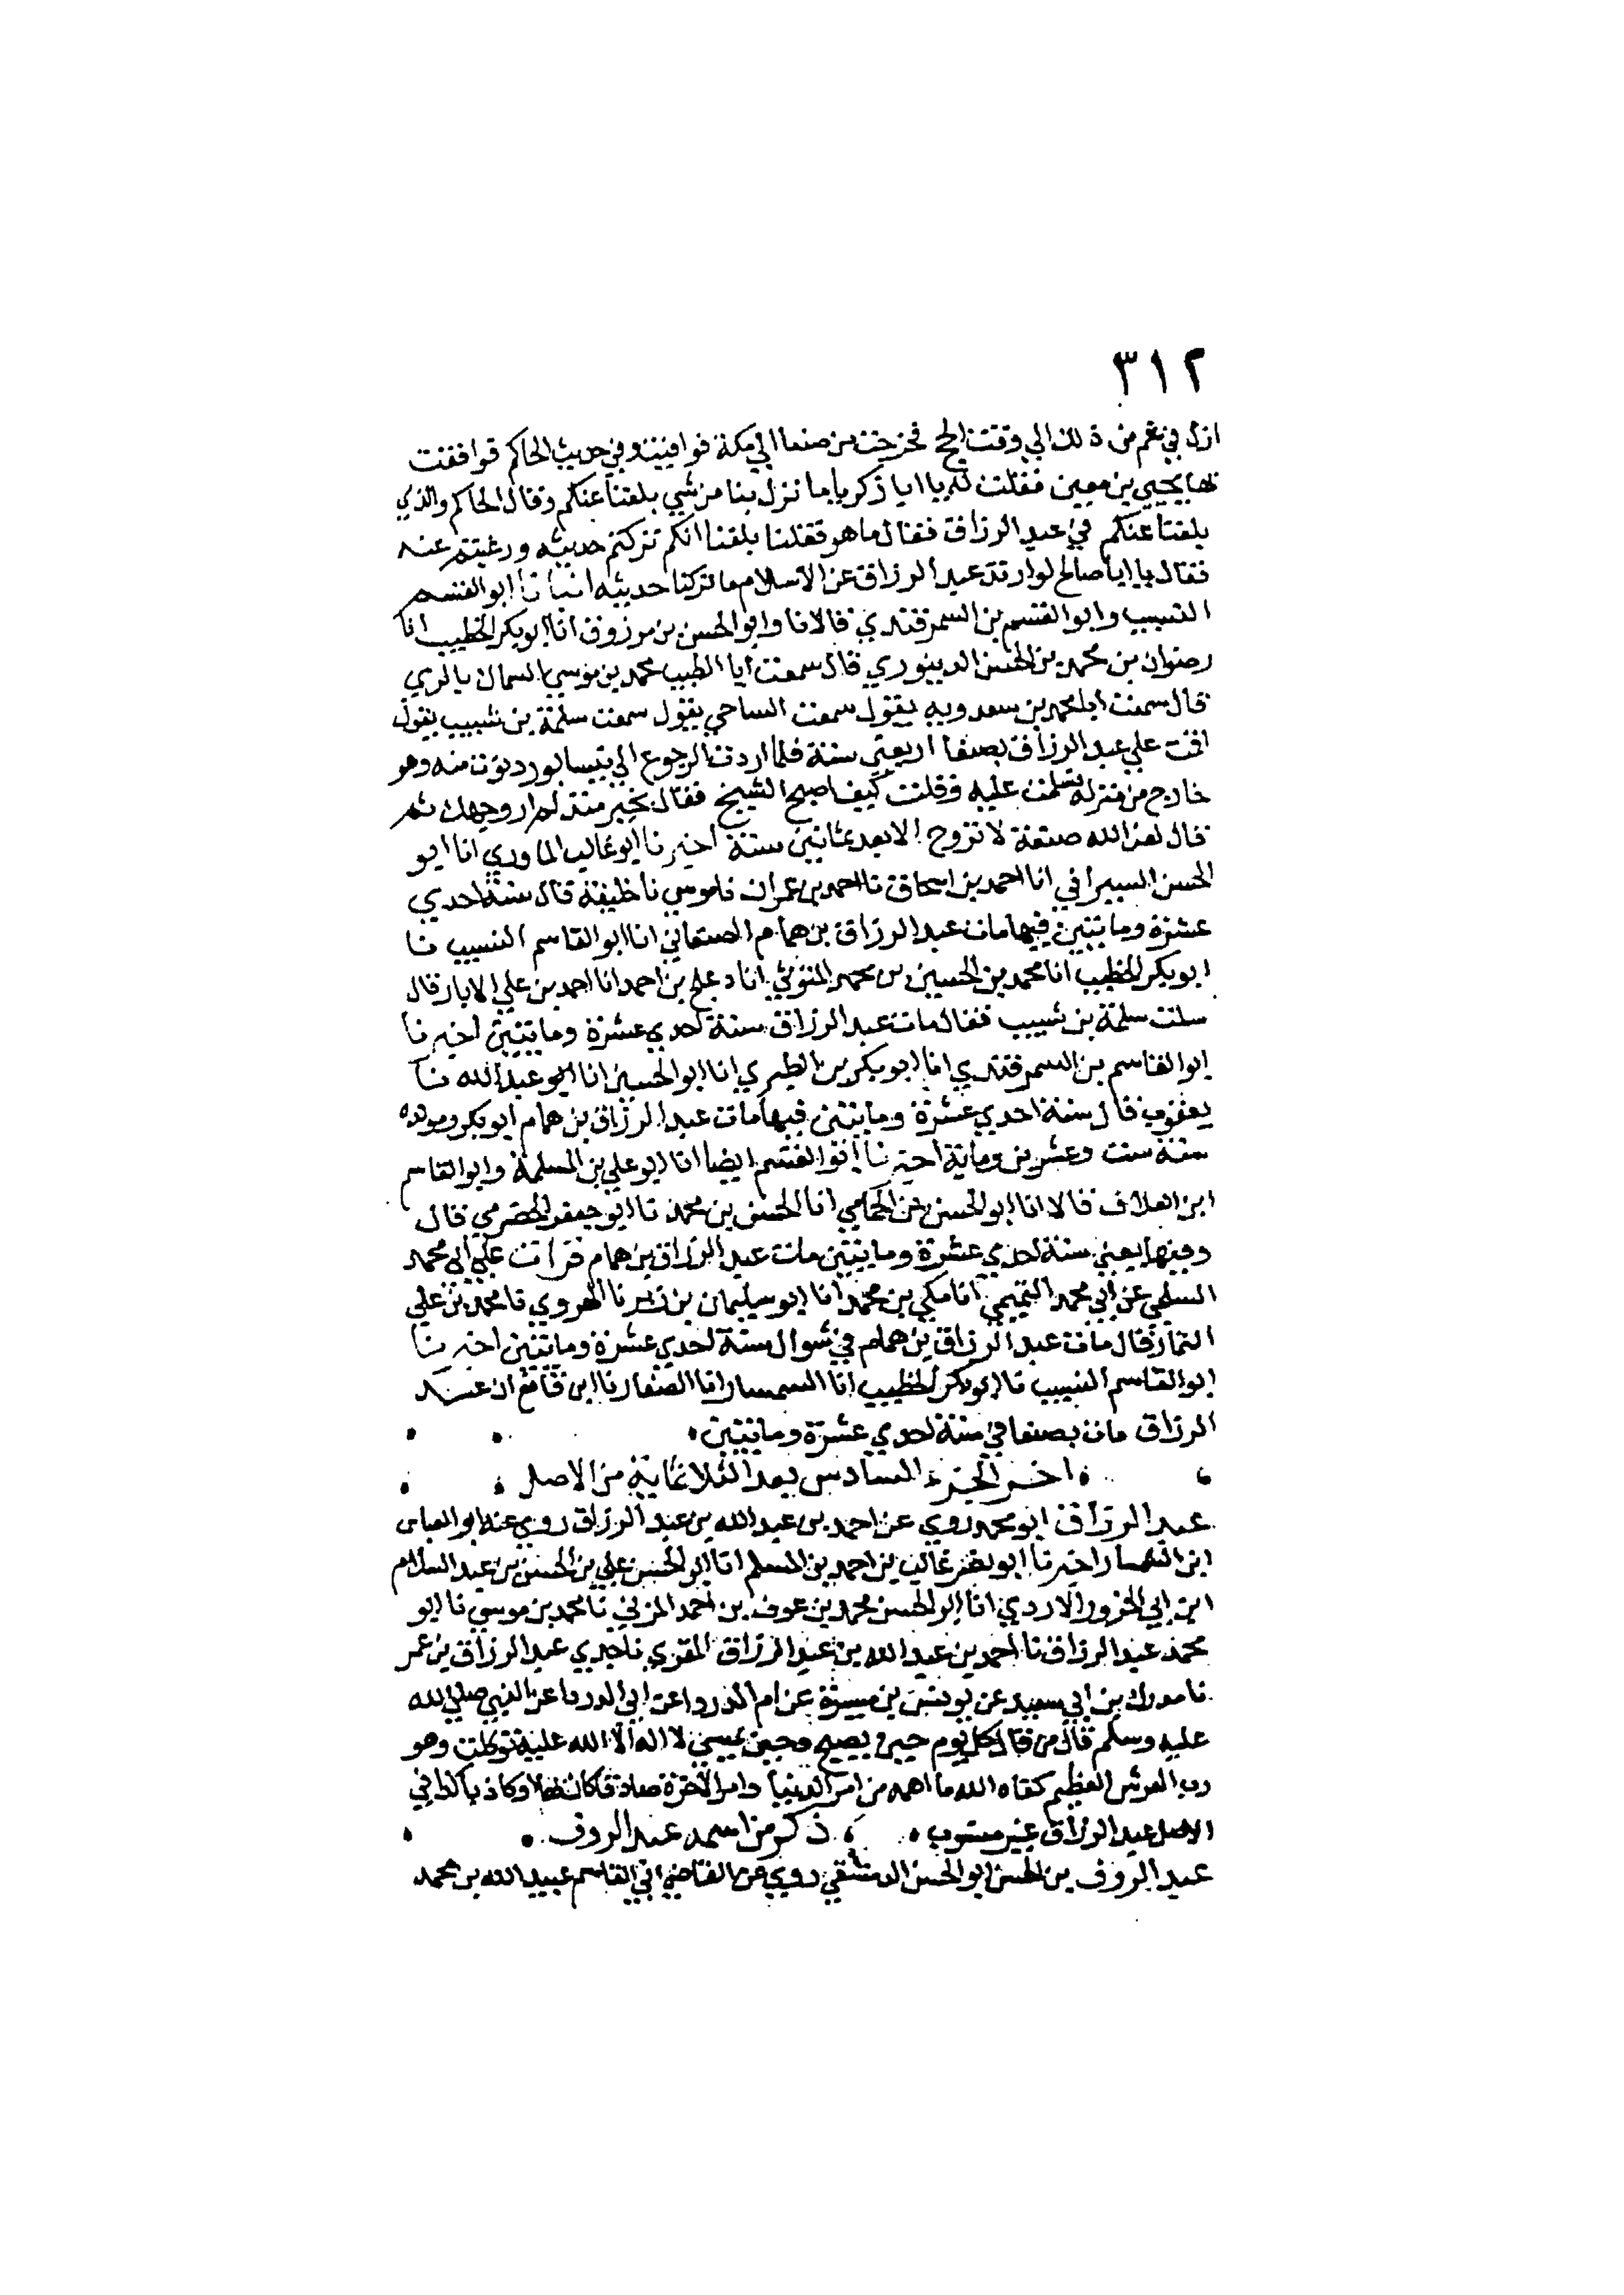 ٣١٢
ازل في غم من ذلك الي وقت الحج فخرجت من صنعا الي مكة فوافيت وفي حديث الحاكم فوافقت
بها يحيي بن معين فقلت له يا ابا زكريا ما نزل بنا من شي بلغنا عنكم وقال الحاكم والذي
بلغنا عنكم في عبد الرزاق فقال ما هو فقلنا بلغنا انكم تركتم حديثه ورغبتم عنه
فقال يا ابا صالح لو ارتد عبد الرزاق عن الاسلام ما تركنا حديثه انبانا ابو القسم
النسيب وابو القسم بن السمرقندي قالا نا وابو الحسن بن مرزوق انا ابو بكر الخطيب انا
رضوان بن محمد بن الحسن الدينوري قال سمعت ابا الطيب محمد بن موسي السمان بالري
قال سمعت ابا محمد بن سعدويه يقول سمعت الساجي يقول سمعت سلمة بن شبيب يقول
اقمت علي عبد الرزاق بصنعا اربعين سنة فلما اردت الرجوع الي نيسابور دنوت منه وهو
خارج من منزله فسلمت عليه وقلت كيف اصبح الشيخ فقال بخير منذ لم ار وجهك ثم
قال لعن الله صنعة لا تروج الا بعد ثمانين سنة اخبرنا ابو غالب الماوردي انا ابو
الحسن السيرافي انا احمد بن اسحاق نا احمد بن عمران نا موسي نا خليفة قال سنة احدي
عشرة وماتين فيها مات عبد الرزاق بن همام الصنعاني انا ابو القاسم النسيب نا
ابو بكر الخطيب انا محمد بن الحسين بن محمد المتوثي انا دعلج بن احمد انا احمد بن علي الابار قال
سلت سلمة بن شبيب فقال مات عبد الرزاق سنة احدي عشرة وماتين اخبرنا
ابو القاسم بن السمرقندي انا ابو بكر بن الطبري انا ابو الحسين انا ابو عبد الله نا
يعقوب قال سنة احدي عشرة وماتين فيها مات عبد الرزاق بن همام ابو بكر ومولده
سنة ست وعشرين وماية اخبرنا ابو القسم ايضا انا ابو علي بن المسلمة وابو القاسم
ابن العلاف قالا انا ابو الحسن بن الحمامي انا الحسن بن محمد نا ابو جعفر الحضرمي قال
وفيها يعني سنة احدي عشرة وماتين مات عبد الرزاق بن همام قرات علي ابي محمد
السلمي عن ابي محمد التميمي انا مكي بن محمد انا ابو سليمان بن زبر نا الهروي نا محمد بن علي
التمار قال مات عبد الرزاق بن همام في شوال سنة احدي عشرة وماتين اخبرنا
ابو القاسم النسيب نا ابو بكر الخطيب انا السمسار انا الصفار نا ابن قانع ان عبد
الرزاق مات بصنعا في سنة احدي عشرة وماتين
اخر الجزء السادس بعد الثلاثماية من الاصل
عبد الرزاق ابو محمد روي عن احمد بن عبد الله بن عبد الرزاق روي عنه ابو العباس
ابن السمسار اخبرنا ابو نصر غالب بن احمد بن المسلم انا ابو الحسن علي بن الحسن بن عبد السلام
ابن ابي الحزور الازدي انا ابو الحسن محمد بن عوف بن احمد المزني نا محمد بن موسي نا ابو
محمد عبد الرزاق نا احمد بن عبد الله بن عبد الرزاق المقري نا جدي عبد الرزاق بن عمر
نا مدرك بن ابي سعيد عن يونس بن ميسرة عن ام الدردا عن ابي الدردا عن النبي صلي الله
عليه وسلم قال من قال كل يوم حين يصبح وحين يمسي لا اله الا الله عليه توكلت وهو
رب العرش العظيم كفاه الله ما اهمه من امر الدنيا وامر الاخرة صادقا كان بها او كاذبا كذا في
الاصل عبد الرزاق غير منسوب ذكر من اسمه عبد الروف
عبد الروف بن الحسن ابو الحسن الدمشقي روي عن القاضي ابي القاسم عبيد الله بن محمد